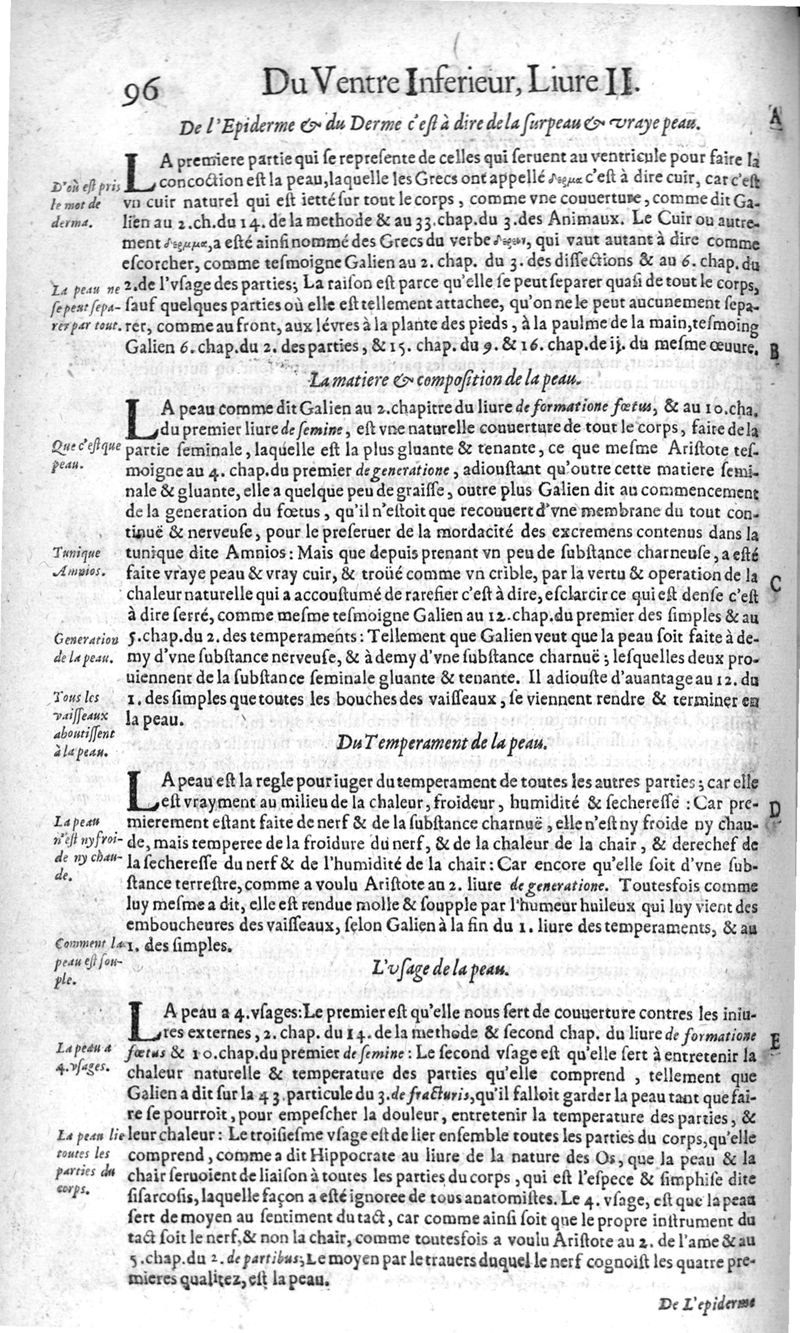 96 Du Ventre Inferieur, Liure II.
De l'Epiderme & du Derme c'est à dire de la surpeau & vraye peau.
A
D'où est pris
le mot de
derma.
LA premiere partie qui se represente de celles qui seruent au ventricule pour faire la
concoction est la peau, laquelle les Grecs ont appellé δερμα c'est à dire cuir, car c'est
vn cuir naturel qui est ietté sur tout le corps, comme vne couuerture, comme dit Ga-
lien au 2. ch. du 14. de la methode & au 33. chap. du 3. des Animaux. Le Cuir ou autre-
ment δερμμα, a esté ainsi nommé des Grecs du verbe δερειν, qui vaut autant à dire comme
escorcher, comme tesmoigne Galien au 2. chap. du 3. des dissections & au 6. chap. du
La peau ne
se peut sepa-
rer par tout.
2. de l'vsage des parties; La raison est parce qu'elle se peut separer quasi de tout le corps,
sauf quelques parties où elle est tellement attachee, qu'on ne le peut aucunement sepa-
rer, comme au front, aux lévres à la plante des pieds, à la paulme de la main, tesmoing
Galien 6. chap. du 2. des parties, & 15. chap. du 9. & 16. chap. de ij. du mesme œuure.
B
La matiere & composition de la peau.
LA peau comme dit Galien au 2. chapitre du liure de formatione fœtus, & au 10. cha.
du premier liure de semine, est vne naturelle couuerture de tout le corps, faite de la
Que c'est que
peau.
partie seminale, laquelle est la plus gluante & tenante, ce que mesme Aristote tes-
moigne au 4. chap. du premier de generatione, adioustant qu'outre cette matiere semi-
nale & gluante, elle a quelque peu de graisse, outre plus Galien dit au commencement
de la generation du fœtus, qu'il n'estoit que recouuert d'vne membrane du tout con-
tinuë & nerueuse, pour le preseruer de la mordacité des excremens contenus dans la
Tunique
Amnios.
tunique dite Amnios: Mais que depuis prenant vn peu de substance charneuse, a esté
faite vraye peau & vray cuir, & troüé comme vn crible, par la vertu & operation de la
C
chaleur naturelle qui a accoustumé de rarefier c'est à dire, esclarcir ce qui est dense c'est
à dire serré, comme mesme tesmoigne Galien au 12. chap. du premier des simples & au
Generation
de la peau.
5. chap. du 2. des temperaments: Tellement que Galien veut que la peau soit faite à de-
my d'vne substance nerueuse, & à demy d'vne substance charnuë; lesquelles deux pro-
uiennent de la substance seminale gluante & tenante. Il adiouste d'auantage au 12. du
Tous les
vaisseaux
aboutissent
à la peau.
1. des simples que toutes les bouches des vaisseaux, se viennent rendre & terminer en
la peau.
Du Temperament de la peau.
LA peau est la regle pour iuger du temperament de toutes les autres parties; car elle
est vrayment au milieu de la chaleur, froideur, humidité & secheresse: Car pre-
D
La peau
n'est ny froi-
de ny chau-
de.
mierement estant faite de nerf & de la substance charnuë, elle n'est ny froide ny chau-
de, mais temperee de la froidure du nerf, & de la chaleur de la chair, & derechef de
la secheresse du nerf & de l'humidité de la chair: Car encore qu'elle soit d'vne sub-
stance terrestre, comme a voulu Aristote au 2. liure de generatione. Toutesfois comme
luy mesme a dit, elle est rendue molle & soupple par l'humeur huileux qui luy vient des
emboucheures des vaisseaux, selon Galien à la fin du 1. liure des temperaments, & au
Comment la
peau est sou-
ple.
1. des simples.
L'vsage de la peau.
LA peau a 4. vsages: Le premier est qu'elle nous sert de couuerture contres les iniu-
res externes, 2. chap. du 14. de la methode & second chap. du liure de formatione
E
La peau a
4. vsages.
fœtus & 10. chap. du premier de semine: Le second vsage est qu'elle sert à entretenir la
chaleur naturelle & temperature des parties qu'elle comprend, tellement que
Galien a dit sur la 43. particule du 3. de fracturis, qu'il falloit garder la peau tant que fai-
re se pourroit, pour empescher la douleur, entretenir la temperature des parties, &
La peau lie
toutes les
parties du
corps.
leur chaleur: Le troisiesme vsage est de lier ensemble toutes les parties du corps, qu'elle
comprend, comme a dit Hippocrate au liure de la nature des Os, que la peau & la
chair seruoient de liaison à toutes les parties du corps, qui est l'espece & simphise dite
sisarcosis, laquelle façon a esté ignoree de tous anatomistes. Le 4. vsage, est que la peau
sert de moyen au sentiment du tact, car comme ainsi soit que le propre instrument du
tact soit le nerf, & non la chair, comme toutesfois a voulu Aristote au 2. de l'ame & au
5. chap. du 2. de partibus; Le moyen par le trauers duquel le nerf cognoist les quatre pre-
mieres qualitez, est la peau.
De L'epiderme